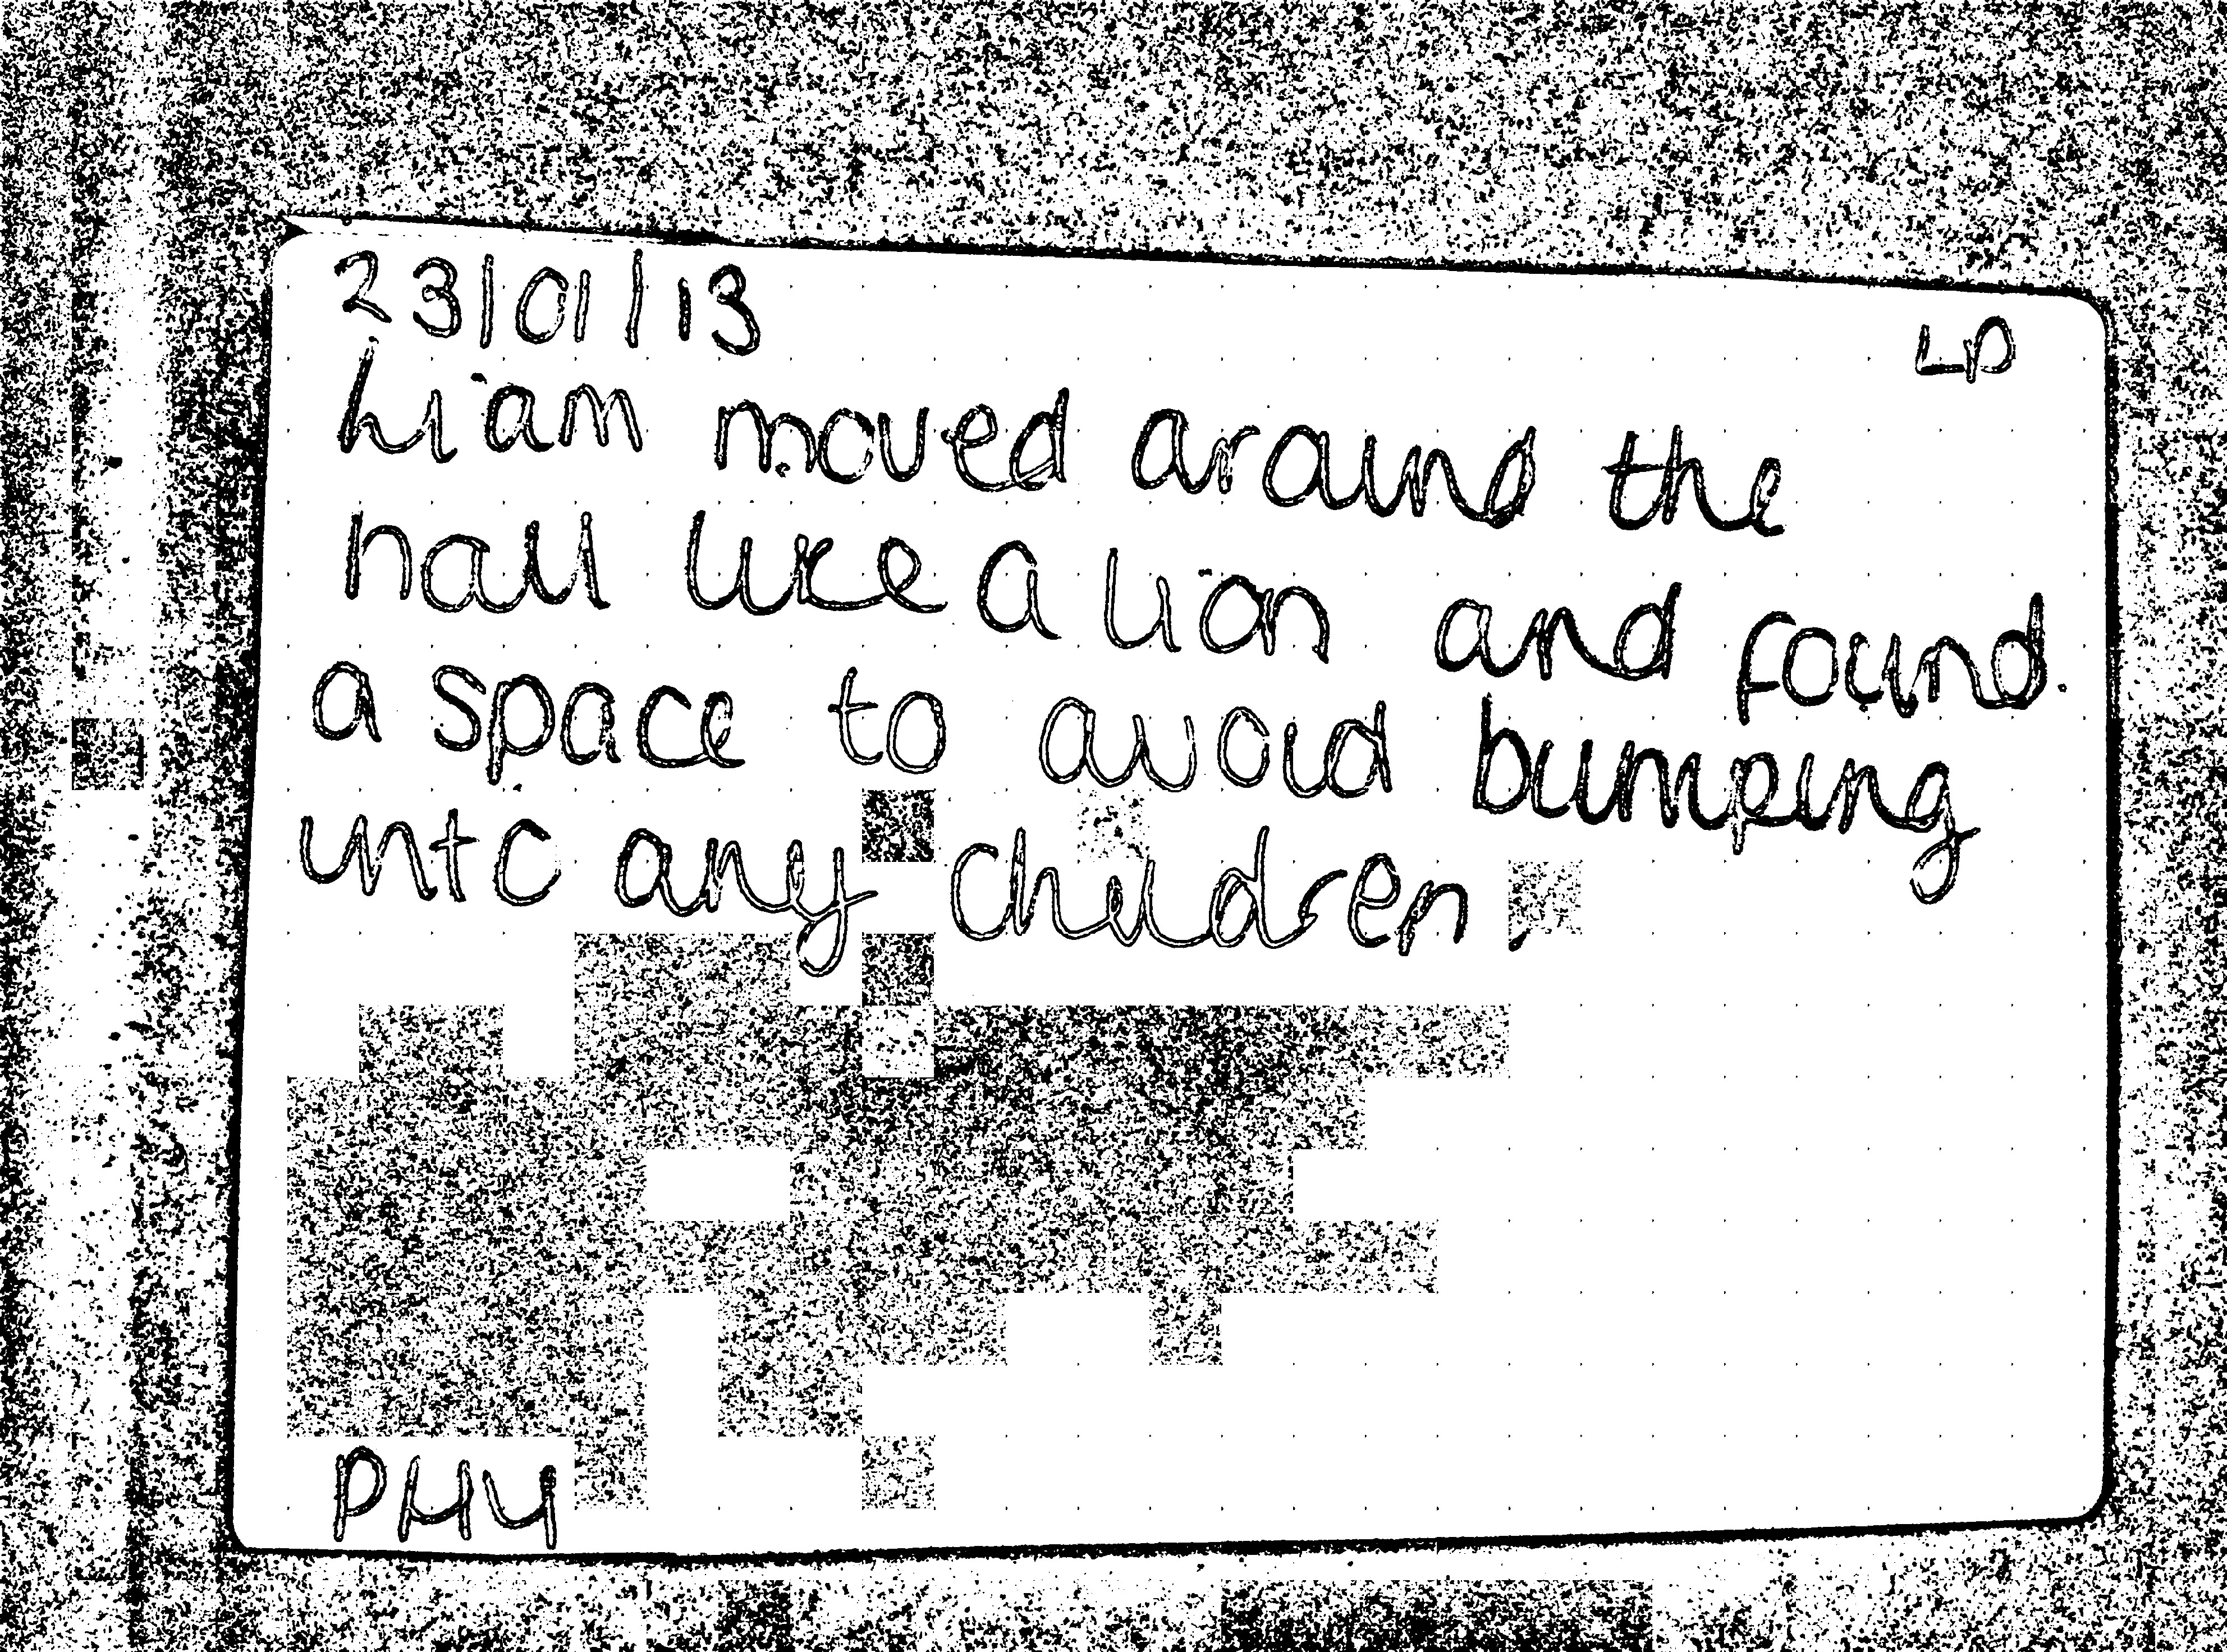 23/01/13
LD
Liam moved around the
hall like a lion and found
a space to avoid bumping
into any children.
PHY